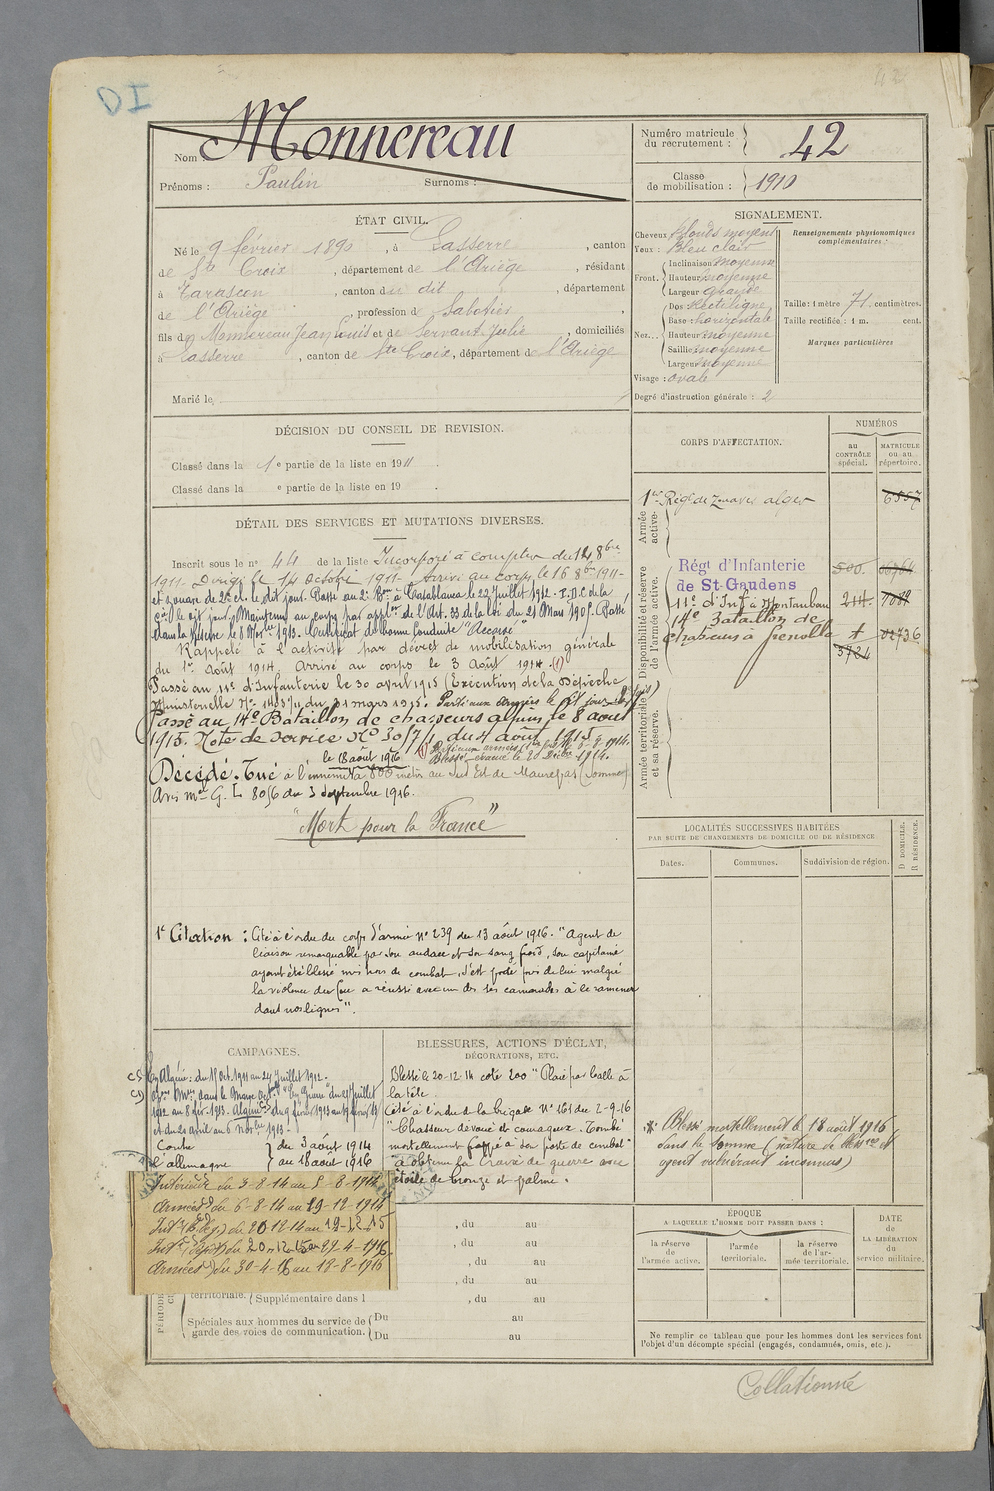 DI
42
Nom Monnereau
Prénoms : Paulin Surnoms :
Numéro matricule du recrutement : 42
Classe de mobilisation : 1910
ÉTAT CIVIL.
Né le 9 février 1890, à Lasserre, canton
de Ste Croix, département de l'Ariège, résidant
à Tarascon, canton du dit, département
de l'Ariège, profession de Sabotier
fils de Monnereau Jean Louis et de Servant Julie, domiciliés
à Lasserre, canton de Ste Croix, département de l'Ariège
Marié le
SIGNALEMENT.
Cheveux blonds moyens
Yeux : Bleu clair
Front. Inclinaison moyenne
Hauteur moyenne
Largeur grande
Nez... Dos Rectiligne
Base horizontale
Hauteur moyenne
Saillie moyenne
Largeur moyenne
Visage : ovale
Renseignements physionomiques complémentaires :
Taille : 1 mètre 71 centimètres.
Taille rectifiée : 1 m. cent.
Marques particulières
Degré d'instruction générale : 2
DÉCISION DU CONSEIL DE REVISION.
Classé dans la 1e partie de la liste en 1911.
Classé dans la e partie de la liste en 19 .
DÉTAIL DES SERVICES ET MUTATIONS DIVERSES.
Inscrit sous le n° 44 de la liste Incorporé à compter du 1 8bre
1911. Dirigé le 14 octobre 1911. Arrivé au corps le 16 8bre 1911.
et zouave de 2e cl. le dit jour. Passé au 2e Bon à Casablanca le 22 juillet 1912.
le dit jour. Maintenu au corps par appl. de l'Art. 33 de la loi du 21 Mars 1905. Passé
dans la réserve le 8 Nov. 1913. Certificat de bonne conduite "Accordé"
Rappelé à l'activité par décret de mobilisation générale
du 1er Août 1914. Arrivé au corps le 3 Août 1914. (1)
Passé au 11e d'Infanterie le 30 avril 1915 (Exécution de la Dépêche
Ministerielle du 31 mars 1915. Parti aux Armées le
Passé au 14e Bataillon de chasseurs alpins le 8 août
1915. Note de service N° 30/7/1 du 4 août 1915.
(1) Parti aux armées 6-8-1914.
Blessé évacué le 20 Décbre 1914.
le 18 août 1916
Décédé. Tué à l'ennemi à 800 mètres au Sud Est de Maurepas (Somme)
Avis mel G. L 8056 du 3 septembre 1916.
"Mort pour la France"
1e Citation : Cité à l'ordre du corps d'armée N° 239 du 13 août 1916. "Agent de
liaison remarquable par son audace et son sang froid, son capitaine
ayant été blessé mis hors de combat, s'est porté près de lui malgré
la violence du feu a réussi avec un des ses camarades à le ramener
dans nos lignes".
CORPS D'AFFECTATION.
NUMÉROS
au CONTRÔLE spécial.
MATRICULE ou au répertoire.
Armée active.
1er Régt de Zouaves alger 6557
Disponibilité et réserve de l'armée active.
Régt d'Infanterie
de St-Gaudens 500.
11e d'Inf à Montauban 214.
14e Bataillon de
chasseurs à Grenoble 02736
5724
Armée territoriale et sa réserve.
LOCALITÉS SUCCESSIVES HABITÉES
PAR SUITE DE CHANGEMENTS DE DOMICILE OU DE RÉSIDENCE
Dates. Communes. Subdivision de région. D DOMICILE. R RÉSIDENCE.
CAMPAGNES.
En Algérie : du 11 Oct. 1911 au 24 Juillet 1912.
dans le Maroc "En Guerre" du 25 Juillet
1912 au 8 fév. 1913. Algérie du 9 février 1913 au 19 février 13
et du 20 avril au 6 Novbre 1913.
Contre l'allemagne du 3 août 1914
au 18 août 1916
Intérieur du 3-8-14 au 5-8-1914
Armées du 6-8-14 au 19-12-1914
Int. (Bl. de g.) du 20-12-14 au 19-12-15
Int. (dépôt) du 20-12-15 au 29-4-1916.
Armées du 30-4-16 au 18-8-1916
BLESSURES, ACTIONS D'ÉCLAT,
DÉCORATIONS, ETC.
Blessé le 20-12-14 cote 200 "Plaie par balle à
la tête.
Cité à l'ordre de la brigade N° 161 du 2-9-16
"Chasseur dévoué et courageux. Tombé
mortellement frappé à son poste de combat"
a obtenu la Croix de guerre avec
étoile de bronze et palme.
* Blessé mortellement le 18 août 1916
dans la Somme (nature de bless. et
agent vulnérant inconnus)
, du au
, du au
, du au
, du au
territoriale. Supplémentaire dans l , du au
Spéciales aux hommes du service de garde des voies de communication. Du au
Du au
ÉPOQUE
A LAQUELLE L'HOMME DOIT PASSER DANS :
la réserve de l'armée active.
l'armée territoriale.
la réserve de l'armée territoriale.
DATE de LA LIBÉRATION du service militaire.
Ne remplir ce tableau que pour les hommes dont les services font
l'objet d'un décompte spécial (engagés, condamnés, omis, etc.).
Collationné